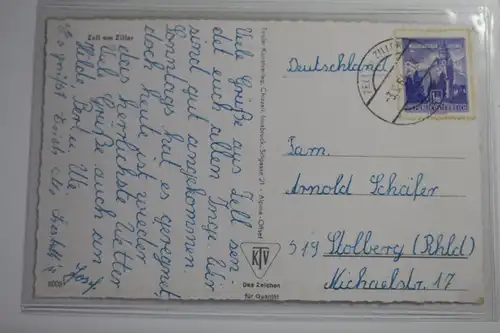 Zell am Ziller
Viele Grüße aus Zell sen-
det euch allen Inge. Wir
sind gut angekommen.
Sonntags hat es geregnet,
doch heute ist wieder
das herrlichste Wetter
Viele Grüße auch an
Hilde, Ute
Es grüßt
Josef
8008
Tiroler Kunstverlag Chizzali, Innsbruck, Sillgasse 21 - Alpina-Offset
KTV
Das Zeichen
für Qualität
ZELL ZILLER
Deutschland
Fam.
Arnold Schäfer
519 Stolberg (Rhld)
Michaelstr. 17